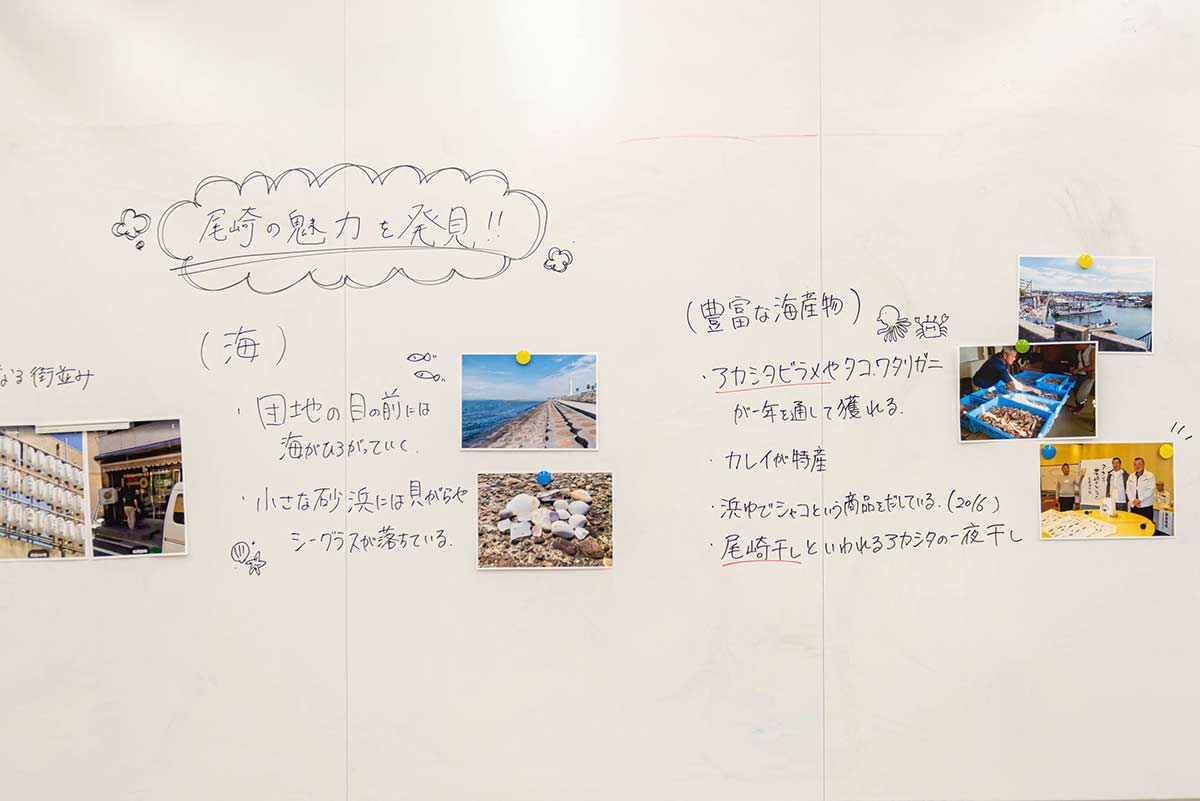 尾崎の魅力を発見!!
なる街並み
(海)
・団地の目の前には
海がひろがっていく.
・小さな砂浜には貝がらや
シーグラスが落ちている.
(豊富な海産物)
・アカシタビラメやタコ、ワタリガニ
が一年を通して獲れる.
・カレイが特産
・浜ゆでシャコという商品をだしている.(2016)
・尾崎干しといわれるアカシタの一夜干し